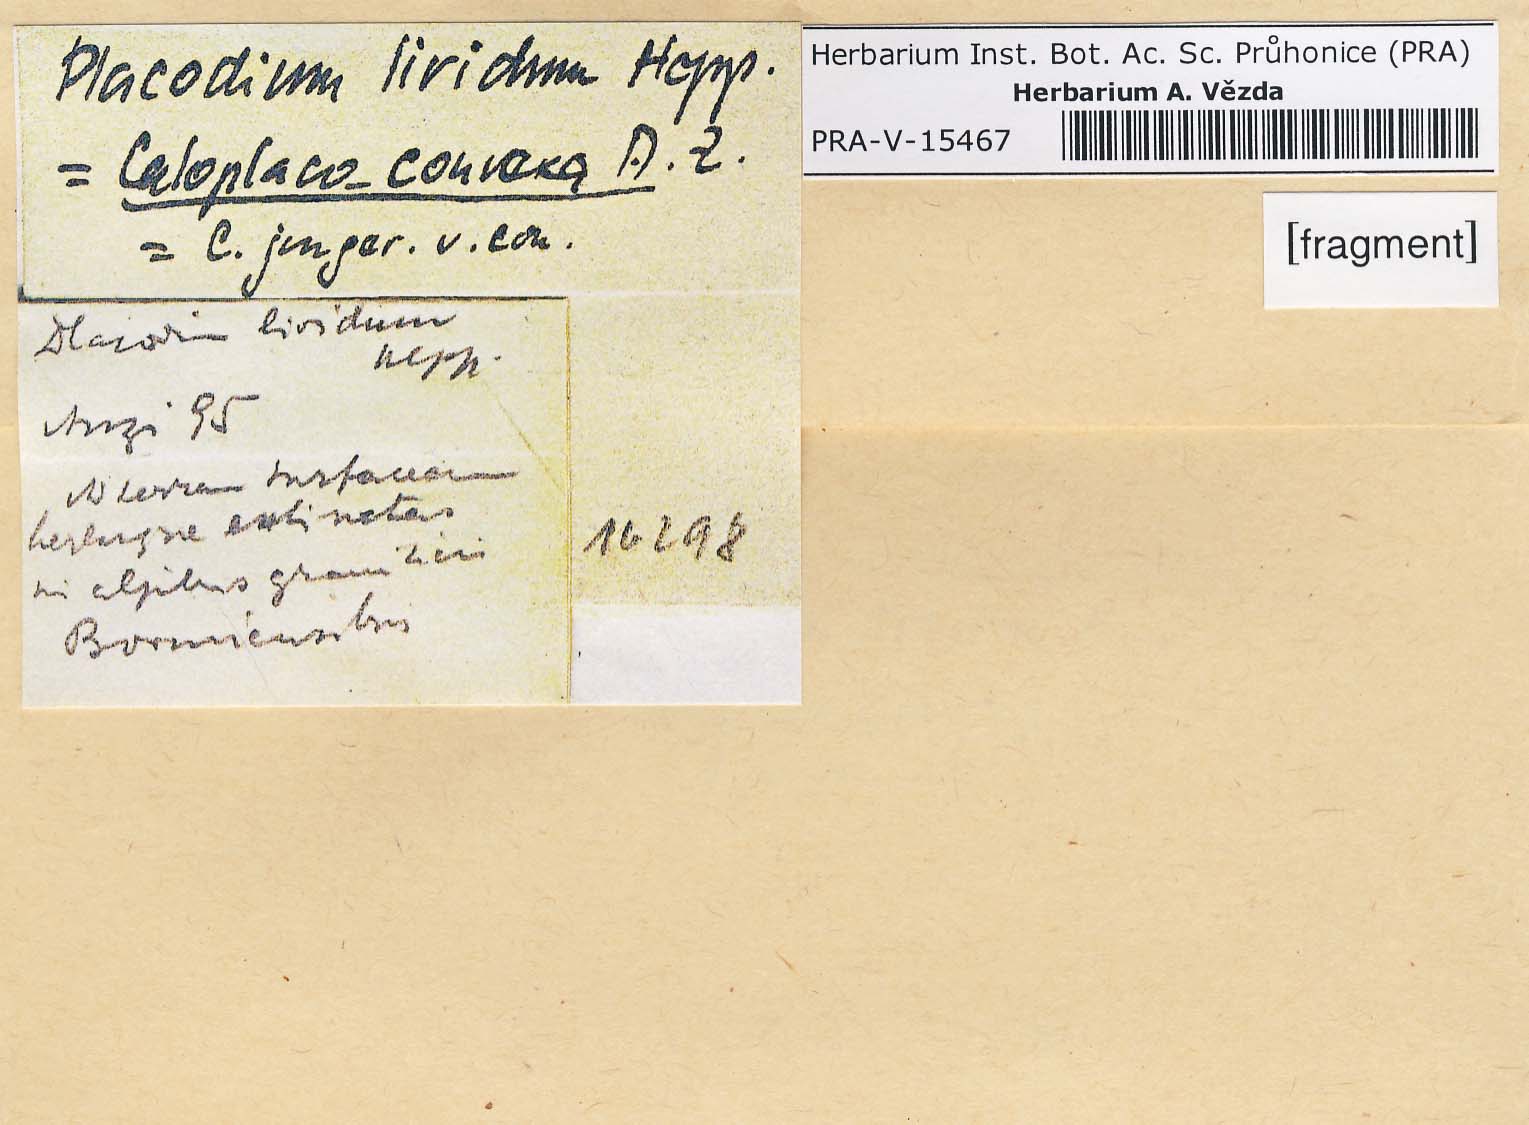 Placodium lividum Hepp.
= Caloplaca convexa A. Z.
= C. junger. v. con.
Herbarium Inst. Bot. Ac. Sc. Průhonice (PRA)
Herbarium A. Vězda
PRA-V-15467
[fragment]
Placodium lividum
Hepp.
Anzi 95
Ad terram turfaceam
herbasque extinctas
in alpibus graniticis
Bormiensibus
16298